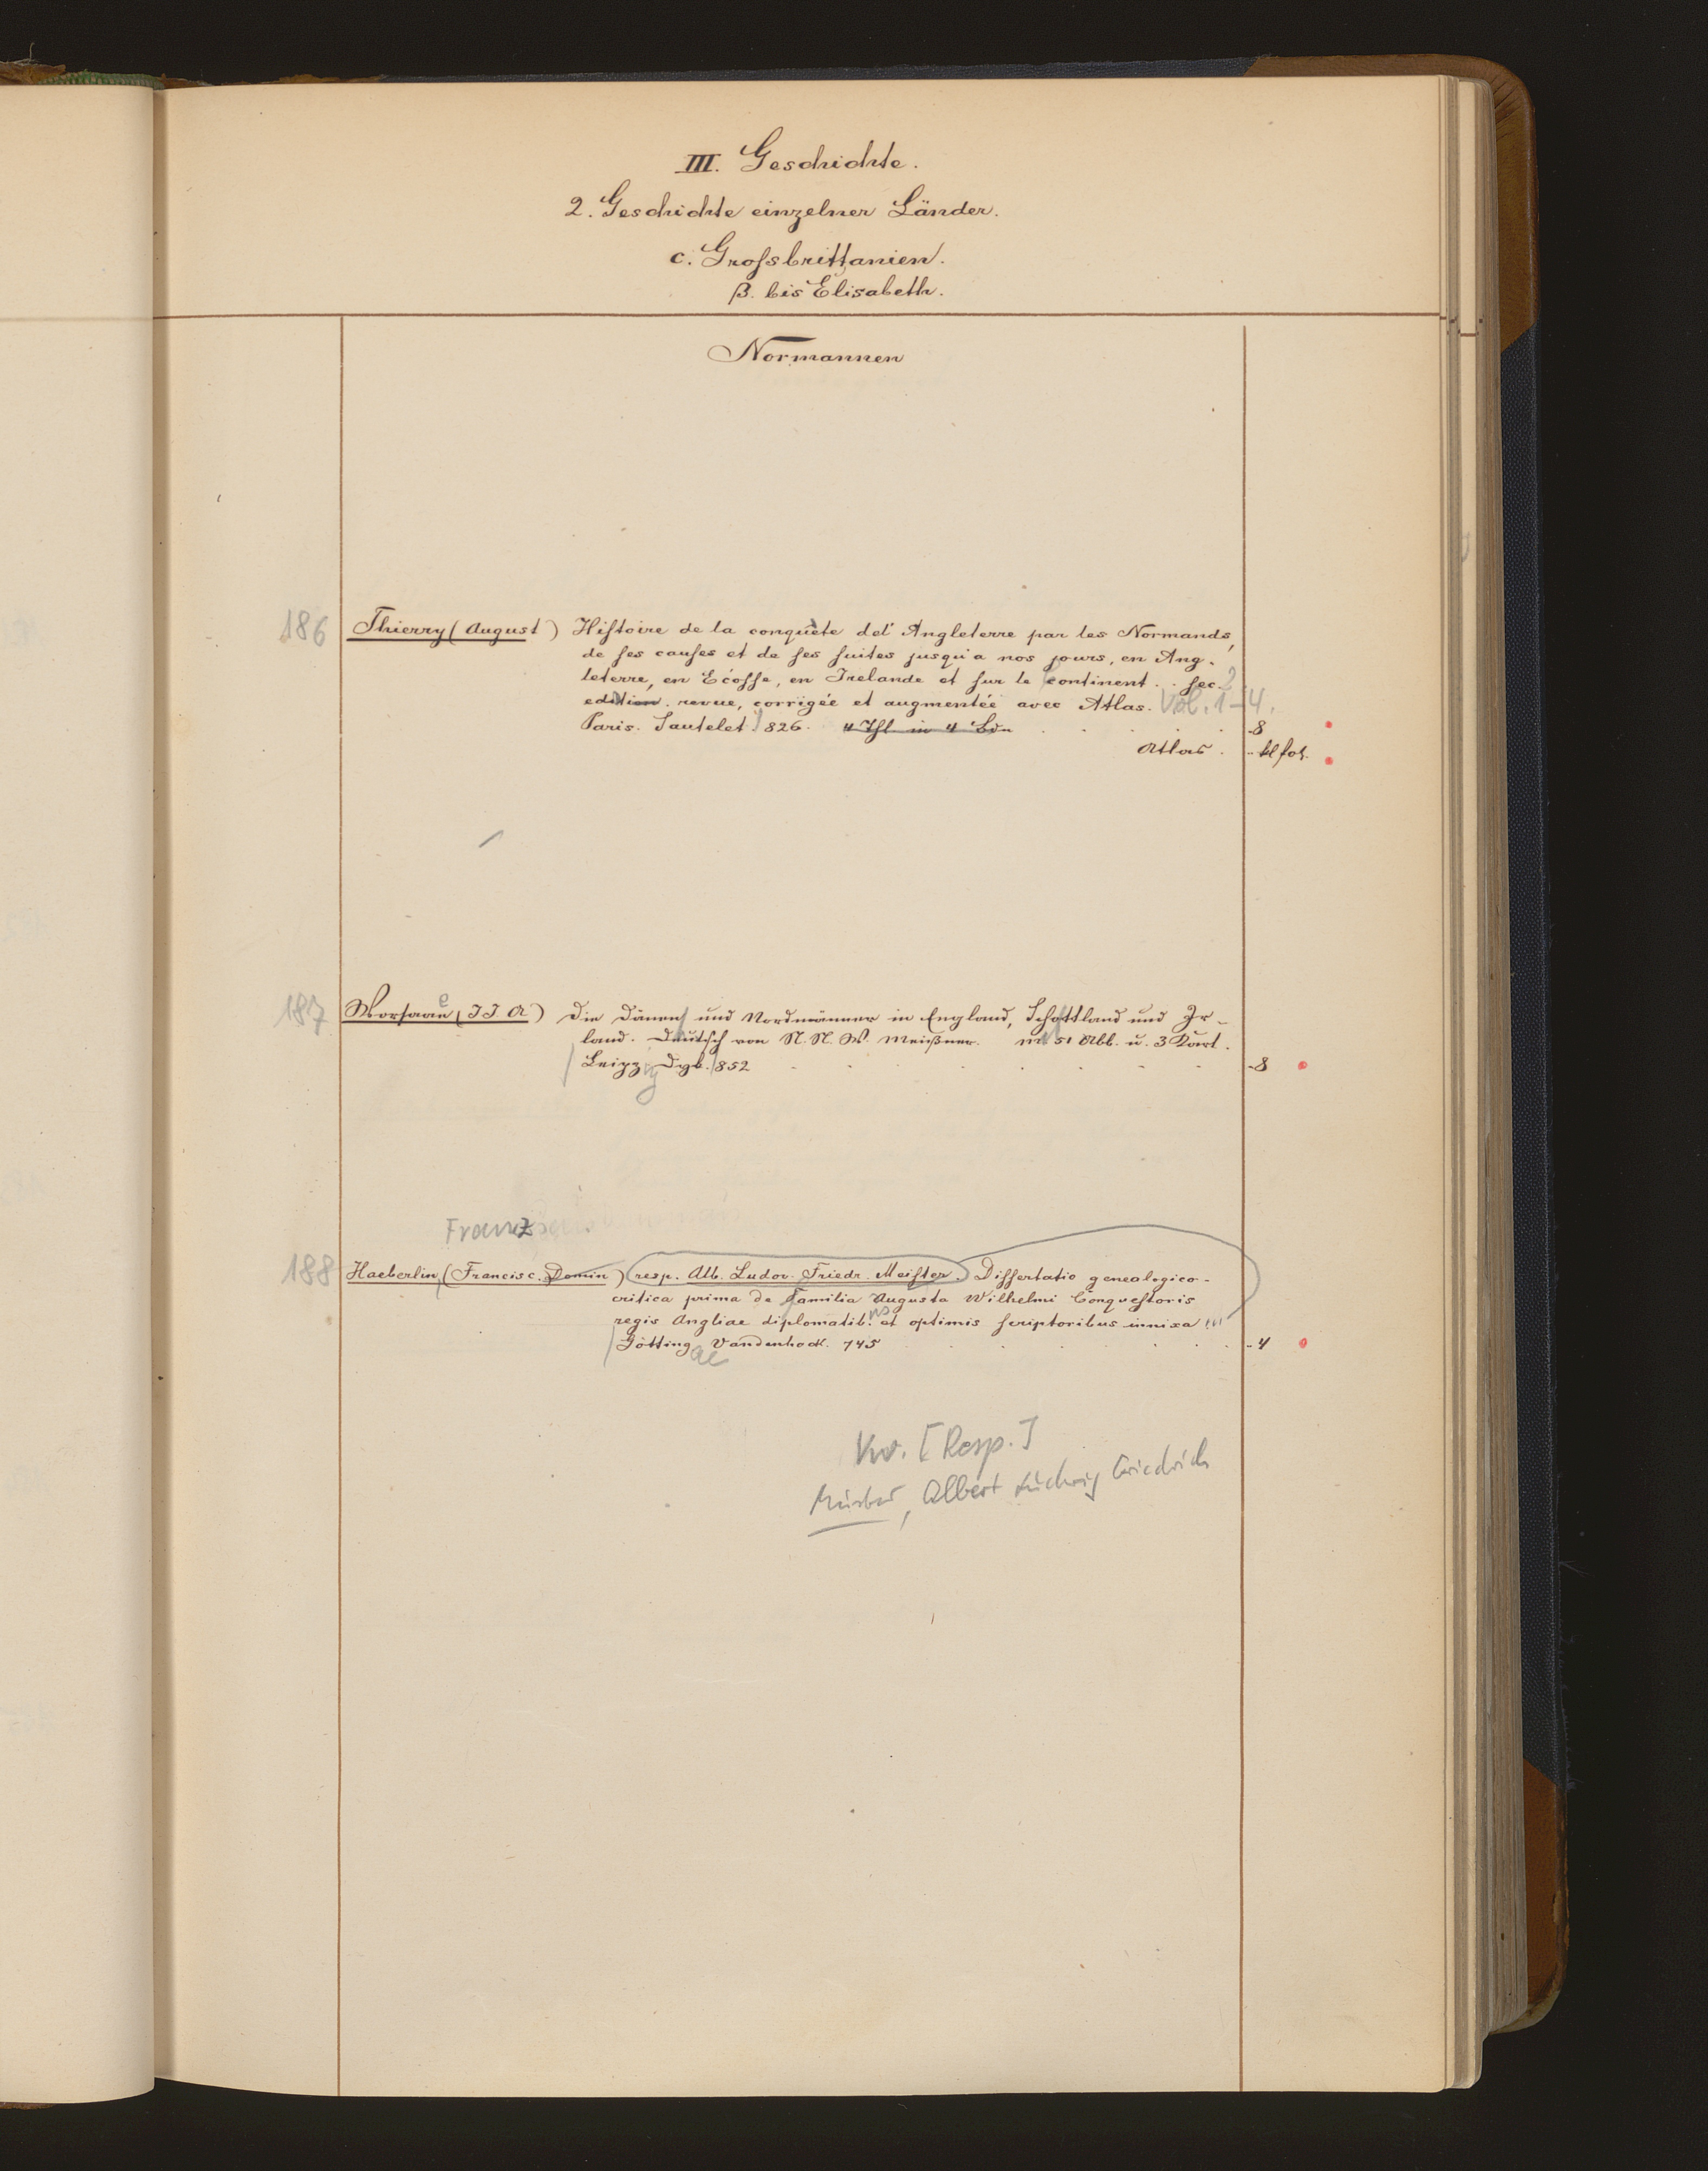 III. Geschichte.
2. Geschichte einzelner Länder.
c. Grossbrittanien.
β. bis Elisabeth.
Normannen
186 Thierry (August) Histoire de la conquète del' Angleterre par les Normands,
de ses causes et de ses suites jusqu'a nos jours, en Ang-
leterre, en Ecósse, en Irelande et sur le continent. . sec. 2
edition. revue, corrigée et augmentée avec Atlas. Vol. 1-4.
Paris. Sautelet 826. 4 Thl in 4 Bdn . . . . 8
Atlas . .. kl fol.
187 Worsaae (J J A) Die Dänen und Nordmänner in England, Schottland und Ir-
land. Deutsch von N. N. W. Meißner. m 51 Abb. u. 3 Kart.
Leipzig Dyk. 852 . . . . . . . -8
Franz
188 Haeberlin, (Francisc. Domin) resp. Alb. Ludov. Friedr. Meister. Dissertatio genealogico-
critica prima de Familia Augusta Wilhelmi Conquestoris
regis Angliae diplomatib. us et optimis scriptoribus innixa
Götting ae Vandenhoek. 745 . . . . . .. 4
Vw. [Resp.]
Meister, Albert Ludwig Friedrich